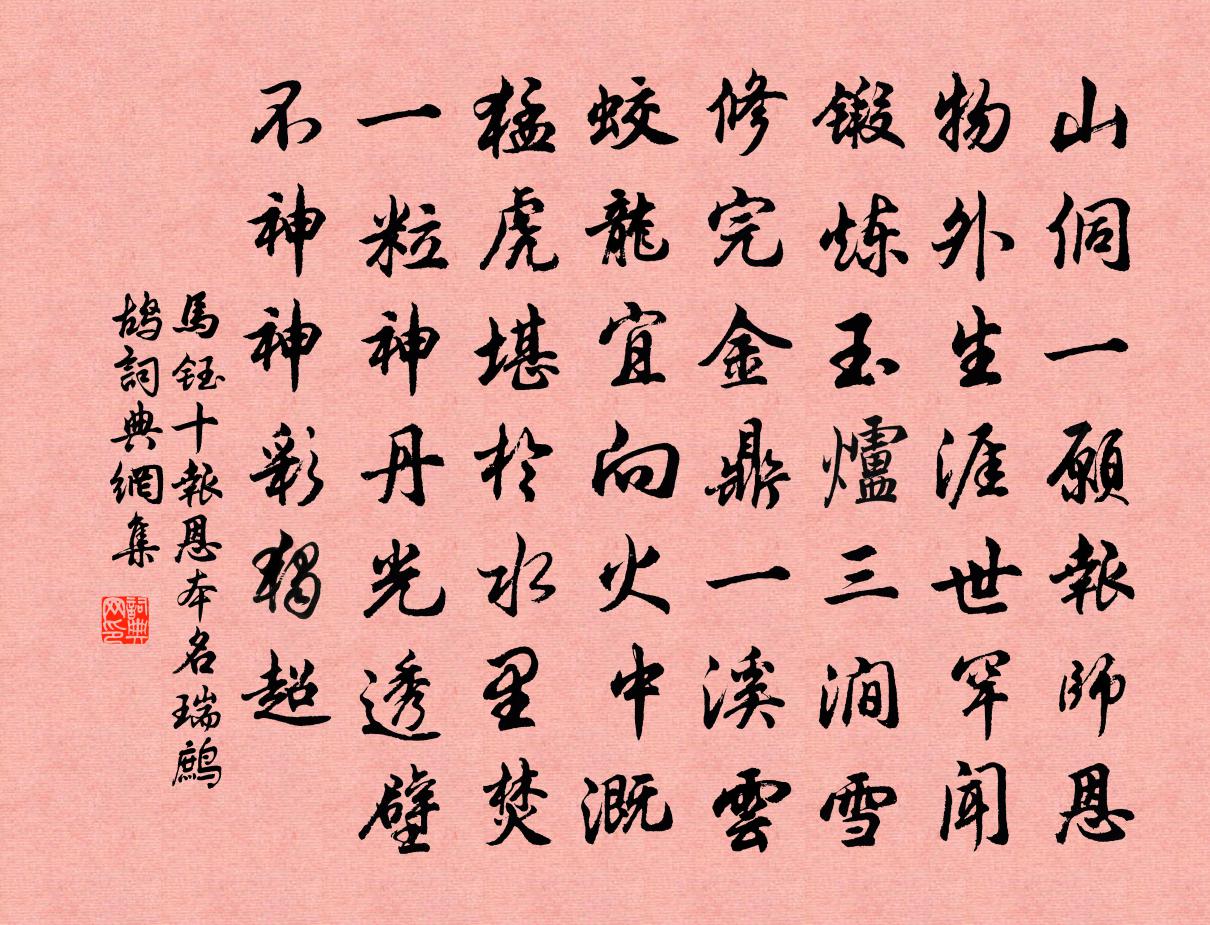 山侗一願報師恩
物外生涯世罕聞
鍛炼玉爐三澗雪
修完金鼎一溪雲
蛟龍宜向火中溉
猛虎堪於水里焚
一粒神丹光透壁
不神神彩獨超
馬鈺十報恩本名瑞鷓
鴣詞典網集
詞典网印